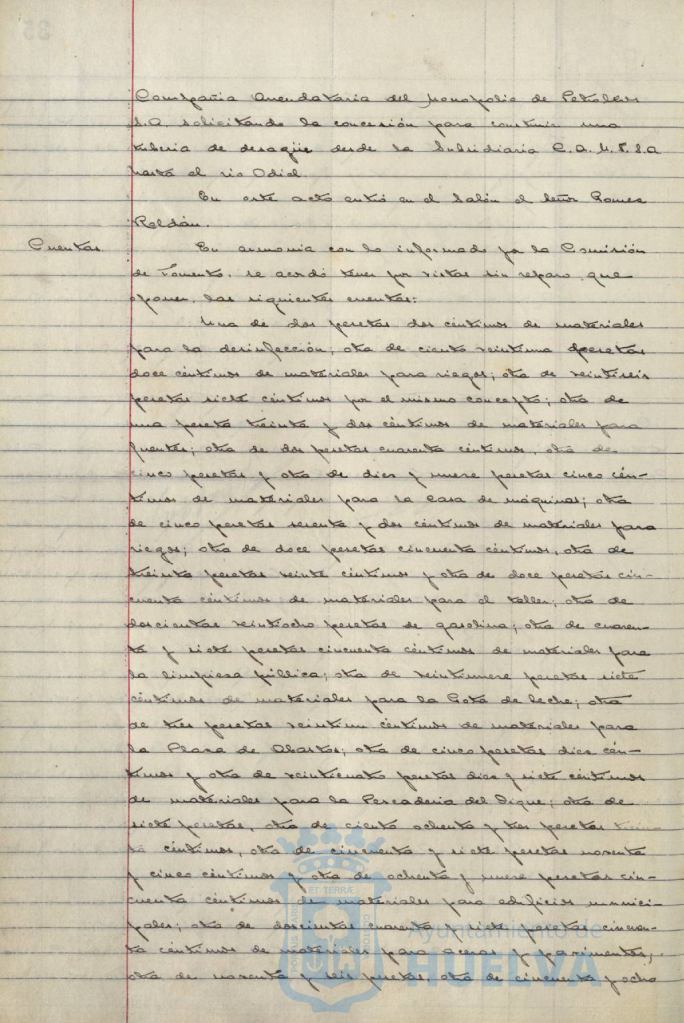 Compañia Arrendataria del Monopolio de Petróleos
S.A. solicitando la concesión para construir una
tuberia de desagüe desde la Subsidiaria C.A.M.P.S.A
hasta el rio Odiel.
En este acto entró en el Salón el Señor Gomez
Roldán.
Cuentas
En armonia con lo informado por la Comisión
de Fomento, se acordó tener por vistas sin reparo que
oponer, las siguientes cuentas:
Una de dos pesetas dos céntimos de materiales
para la desinfección; otra de ciento veintiuna pesetas
doce céntimos de materiales para riegos; otra de veintiseis
pesetas siete céntimos por el mismo concepto; otra de
una peseta treinta y dos céntimos de materiales para
fuentes; otra de dos pesetas cuarenta céntimos, otra de
cinco pesetas y otra de diez y nueve pesetas cinco cén-
timos de materiales para la Casa de máquinas; otra
de cinco pesetas sesenta y dos céntimos de materiales para
riegos; otra de doce pesetas cincuenta céntimos, otra de
treinta pesetas veinte céntimos y otra de doce pesetas cin-
cuenta céntimos de materiales para el taller; otra de
doscientas veintiocho pesetas de gasolina; otra de cuaren-
ta y siete pesetas cincuenta céntimos de materiales para
la limpieza pública; otra de veintinueve pesetas siete
céntimos de materiales para la Gota de leche; otra
de tres pesetas veintiun céntimos de materiales para
la Plaza de Abastos; otra de cinco pesetas diez cén-
timos y otra de veinticuatro pesetas diez y siete céntimos
de materiales para la Pescaderia del Dique; otra de
siete pesetas, otra de ciento ochenta y tres pesetas
ta céntimos, otra de cincuenta y siete pesetas noventa
y cinco céntimos y otra de ochenta y nueve pesetas cin-
cuenta céntimos de materiales para edificios munici-
pales; otra de doscientas cuarenta y siete pesetas cincuen-
ta céntimos de materiales para aceras y pavimentos,
otra de noventa y seis pesetas, otra de cincuenta y ocho
Ayuntamiento de
HUELVA